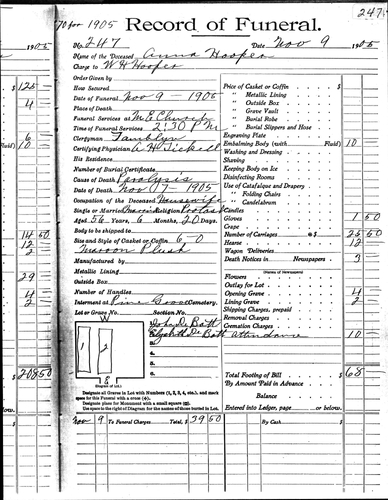 70 for 1905 Record of Funeral. 247
1905 No. 247 Date Nov 9 1905
Name of the Deceased Anna Hooper
Charge to W H Hooper
Order Given by
How Secured
Date of Funeral Nov 9 - 1905
Place of Death
Funeral Services at M E Church
Time of Funeral Services 2:30 P M
Clergyman Tamblyn
Certifying Physician A H Tickell
His Residence
Number of Burial Certificate
Cause of Death Paralysis
Date of Death Nov 17 - 1905
Occupation of the Deceased Housewife
Single or Married Married Religion Protast
Aged 56 Years 6 Months 20 Days
Body to be shipped to
Size and Style of Casket or Coffin 6-0
Maroon Plush
Manufactured by
Metallic Lining
Outside Box
Number of Handles
Interment at Pine Grove Cemetery.
Lot or Grave No. Section No.
1 2
John De Batt
Elizabeth De Batt
(Diagram of Lot.)
Designate all Graves in Lot with Numbers (1, 2, 3, 4, etc.), and mark
space for this Funeral with a cross (+).
Designate place for Monument with a small square (□).
Use space to the right of Diagram for the names of those buried in Lot.
Price of Casket or Coffin
" Metallic Lining
" Outside Box
" Grave Vault
" Burial Robe
" Burial Slippers and Hose
Engraving Plate
Embalming Body (with Fluid) 10 —
Washing and Dressing
Shaving
Keeping Body on Ice
Disinfecting Rooms
Use of Catafalque and Drapery
" Folding Chairs
" Candelabrum
Candles
Gloves 1 50
Crape
Number of Carriages @ $ 25 50
Hearse 12 —
Wagon Deliveries
Death Notices in Newspapers 3 —
(Names of Newspapers)
Flowers
Outlay for Lot
Opening Grave 4 —
Lining Grave 2 —
Shipping Charges, prepaid
Removal Charges
Cremation Charges
Attendance 10 —
Total Footing of Bill $ 68
By Amount Paid in Advance
Balance
Entered into Ledger, page or below.
Nov 9 To Funeral Charges Total, $ 39 50 By Cash
$ 125 —
4
6
Fluid) 10 —
14 50
12 —
2 —
29 —
4 —
2 —
$ 208 50
below.